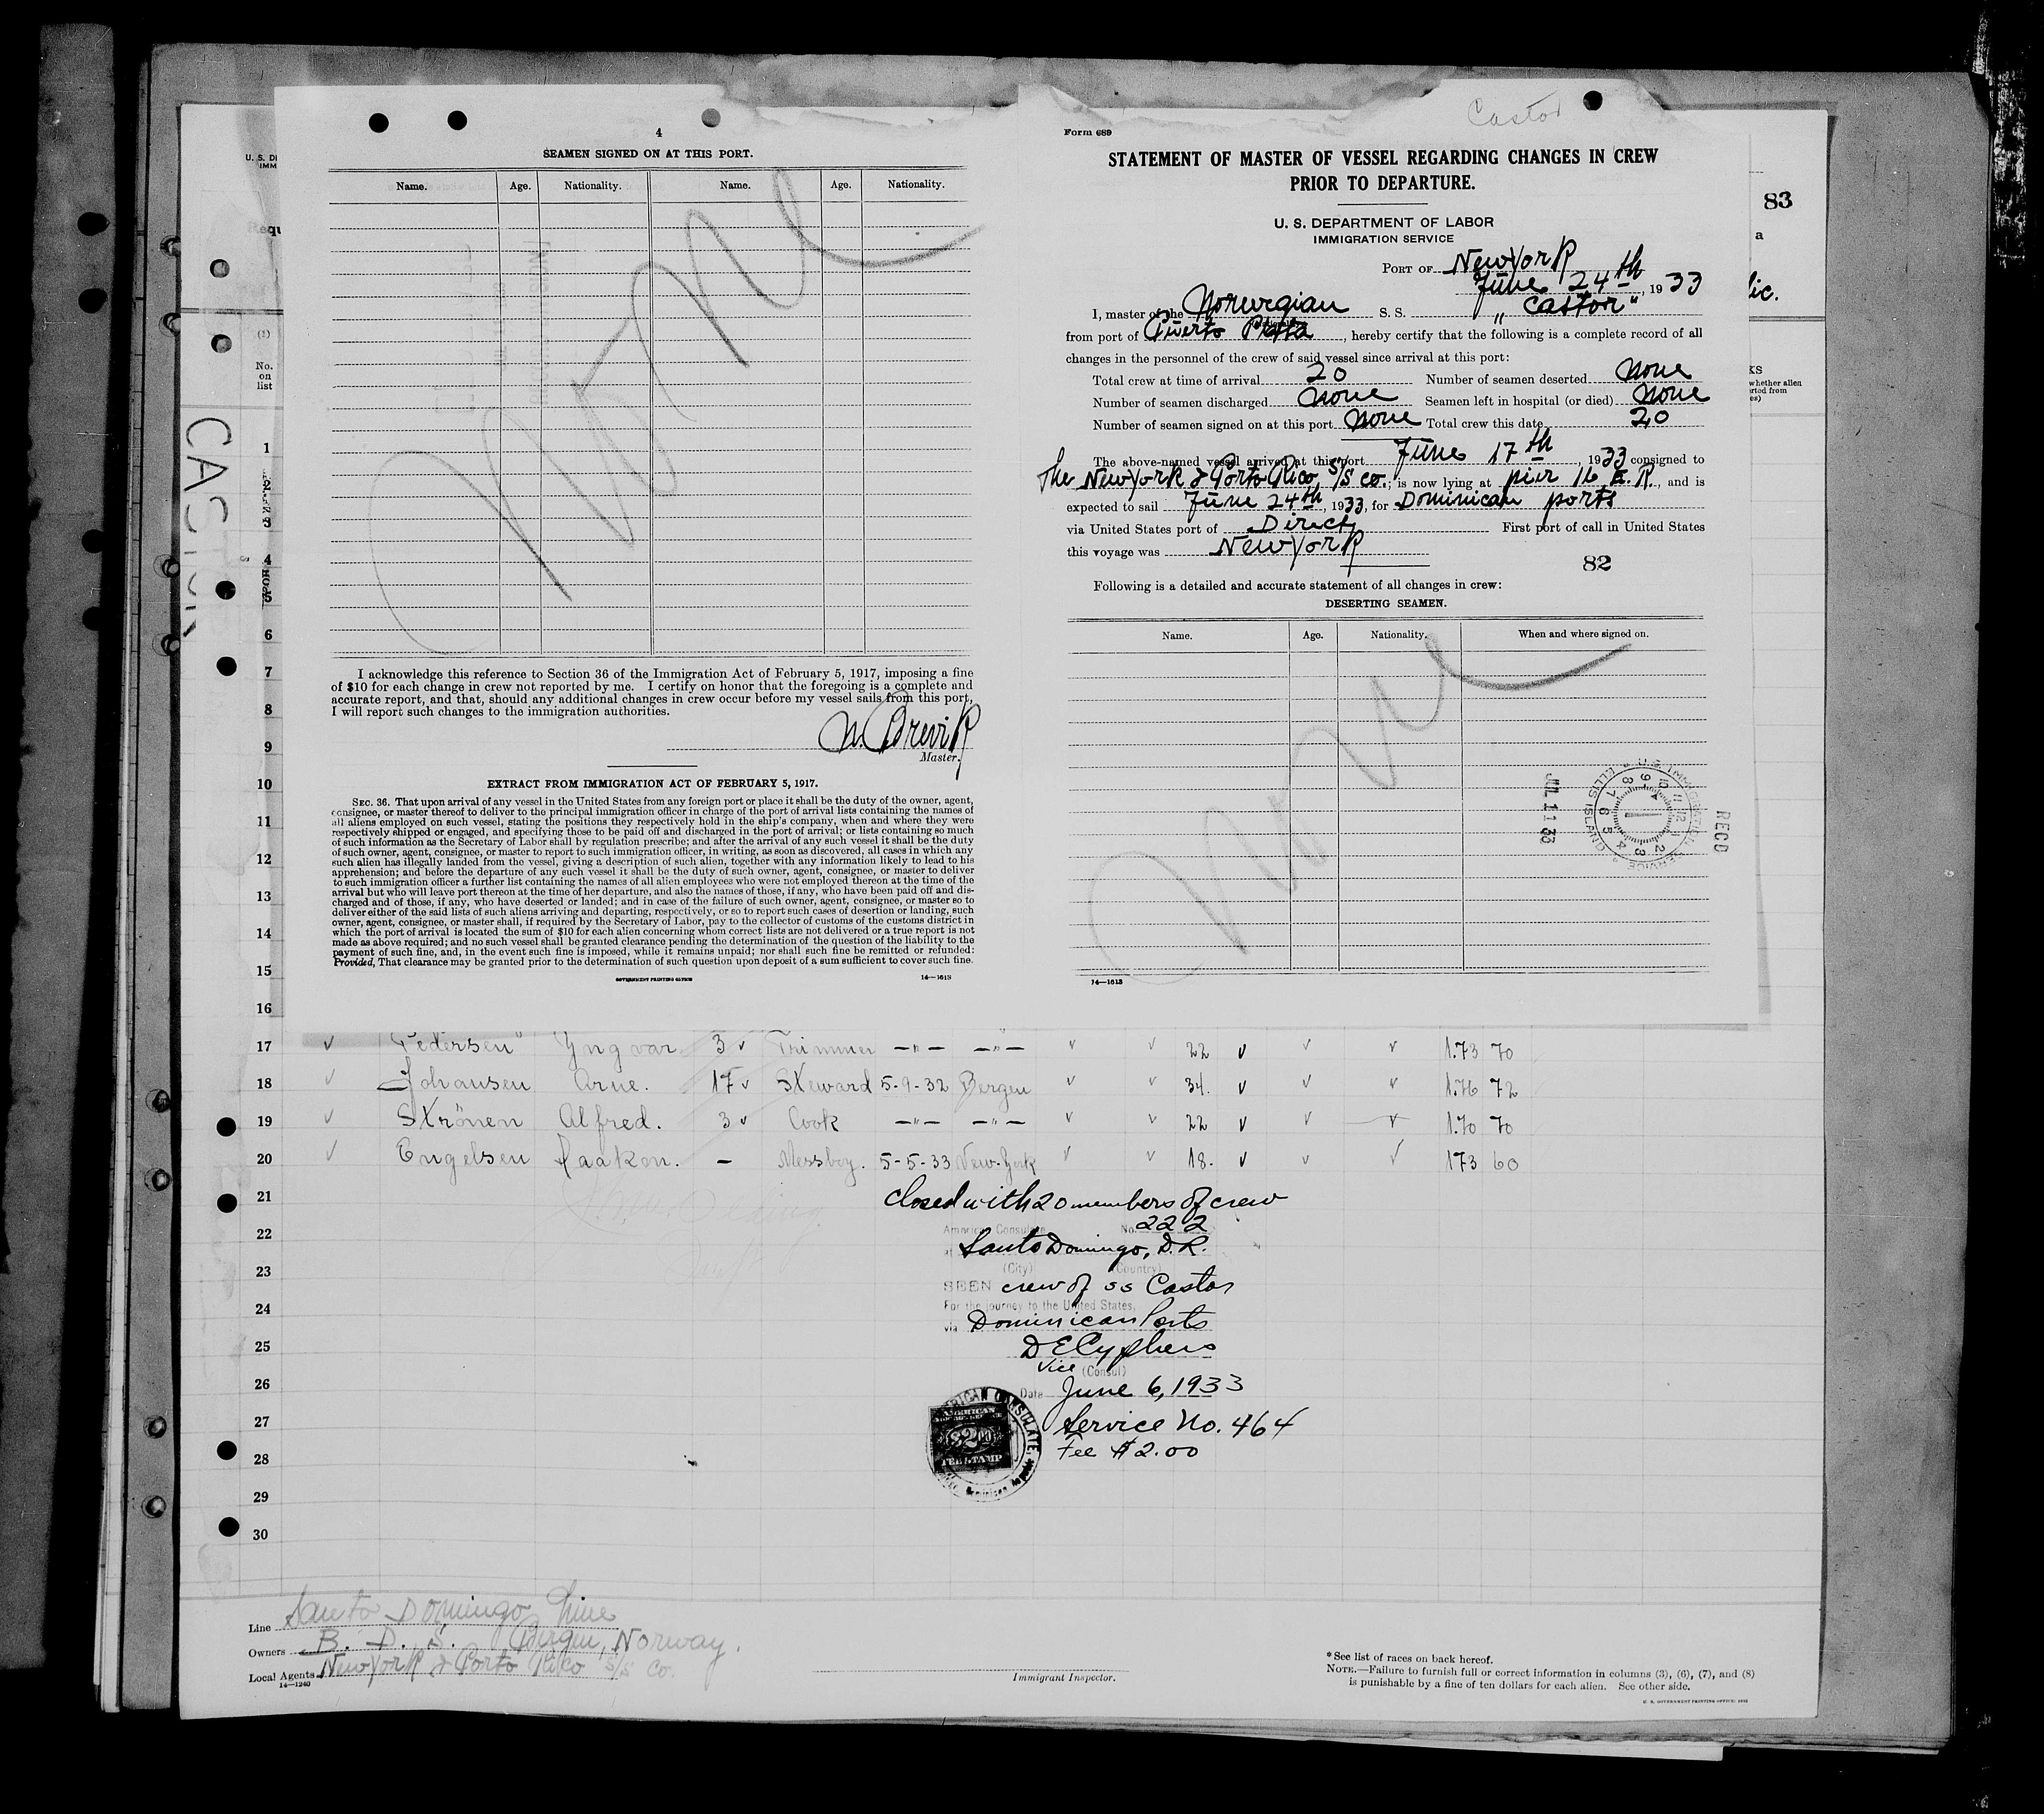 4
SEAMEN SIGNED ON AT THIS PORT.
Name. Age. Nationality. Name. Age. Nationality.
None
I acknowledge this reference to Section 36 of the Immigration Act of February 5, 1917, imposing a fine
of $10 for each change in crew not reported by me. I certify on honor that the foregoing is a complete and
accurate report, and that, should any additional changes in crew occur before my vessel sails from this port,
I will report such changes to the immigration authorities.
Brevik
Master.
EXTRACT FROM IMMIGRATION ACT OF FEBRUARY 5, 1917.
SEC. 36. That upon arrival of any vessel in the United States from any foreign port or place it shall be the duty of the owner, agent,
consignee, or master thereof to deliver to the principal immigration officer in charge of the port of arrival lists containing the names of
all aliens employed on such vessel, stating the positions they respectively hold in the ship's company, when and where they were
respectively shipped or engaged, and specifying those to be paid off and discharged in the port of arrival; or lists containing so much
of such information as the Secretary of Labor shall by regulation prescribe; and after the arrival of any such vessel it shall be the duty
of such owner, agent, consignee, or master to report to such immigration officer, in writing, as soon as discovered, all cases in which any
such alien has illegally landed from the vessel, giving a description of such alien, together with any information likely to lead to his
apprehension; and before the departure of any such vessel it shall be the duty of such owner, agent, consignee, or master to deliver
to such immigration officer a further list containing the names of all alien employees who were not employed thereon at the time of the
arrival but who will leave port thereon at the time of her departure, and also the names of those, if any, who have been paid off and dis-
charged and of those, if any, who have deserted or landed; and in case of the failure of such owner, agent, consignee, or master so to
deliver either of the said lists of such aliens arriving and departing, respectively, or so to report such cases of desertion or landing, such
owner, agent, consignee, or master shall, if required by the Secretary of Labor, pay to the collector of customs of the customs district in
which the port of arrival is located the sum of $10 for each alien concerning whom correct lists are not delivered or a true report is not
made as above required; and no such vessel shall be granted clearance pending the determination of the question of the liability to the
payment of such fine, and, in the event such fine is imposed, while it remains unpaid; nor shall such fine be remitted or refunded:
Provided, That clearance may be granted prior to the determination of such question upon deposit of a sum sufficient to cover such fine.
GOVERNMENT PRINTING OFFICE 14—1613
Castor
Form 689
STATEMENT OF MASTER OF VESSEL REGARDING CHANGES IN CREW
PRIOR TO DEPARTURE.
U. S. DEPARTMENT OF LABOR
IMMIGRATION SERVICE
PORT OF New York
June 24th, 1933
I, master of the Norwegian S. S. "Castor"
from port of Puerto Plata, hereby certify that the following is a complete record of all
changes in the personnel of the crew of said vessel since arrival at this port:
Total crew at time of arrival 20 Number of seamen deserted None
Number of seamen discharged None Seamen left in hospital (or died) None
Number of seamen signed on at this port None Total crew this date 20
The above-named vessel arrived at this port June 17th, 1933 consigned to
The New York & Porto Rico S/S co.; is now lying at pier 16 E.R., and is
expected to sail June 24th, 1933, for Dominican ports
via United States port of Direct First port of call in United States
this voyage was New York
82
Following is a detailed and accurate statement of all changes in crew:
DESERTING SEAMEN.
Name. Age. Nationality. When and where signed on.
None
REC'D
U.S. IMMIGRATION SERVICE ELLIS ISLAND
JUL 11 33
14—1613
83
CASTOR
(1)
No.
on
list
1
2
3
4
5
6
7
8
9
10
11
12
13
14
15
16
17 Pedersen Yngvar. 3 Trimmer —"— —"— 22 1.73 70
18 Johansen Arne. 17 Steward 5-9-32 Bergen 34. 1.76 72
19 Strönen Alfred. 3 Cook —"— —"— 22 1.70 70
20 Engelsen Haakon. – Messboy. 5-5-33 New-York 18. 173 60
21
22
23
24
25
26
27
28
29
30
Closed with 20 members of crew
American Consulate No. 222
at Santo Domingo, D.R.
(City) (Country)
SEEN crew of ss Castor
For the journey to the United States,
via Dominican Ports
D E Cyphers
Vice (Consul)
Date June 6, 1933
Service No. 464
Fee $2.00
AMERICAN CONSULATE
AMERICAN
$2.00
FEE STAMP
Line Santo Domingo Line
Owners B. D. S. Bergen, Norway.
Local Agents New York & Porto Rico S/S Co.
14—1240
Immigrant Inspector.
* See list of races on back hereof.
NOTE.—Failure to furnish full or correct information in columns (3), (6), (7), and (8)
is punishable by a fine of ten dollars for each alien. See other side.